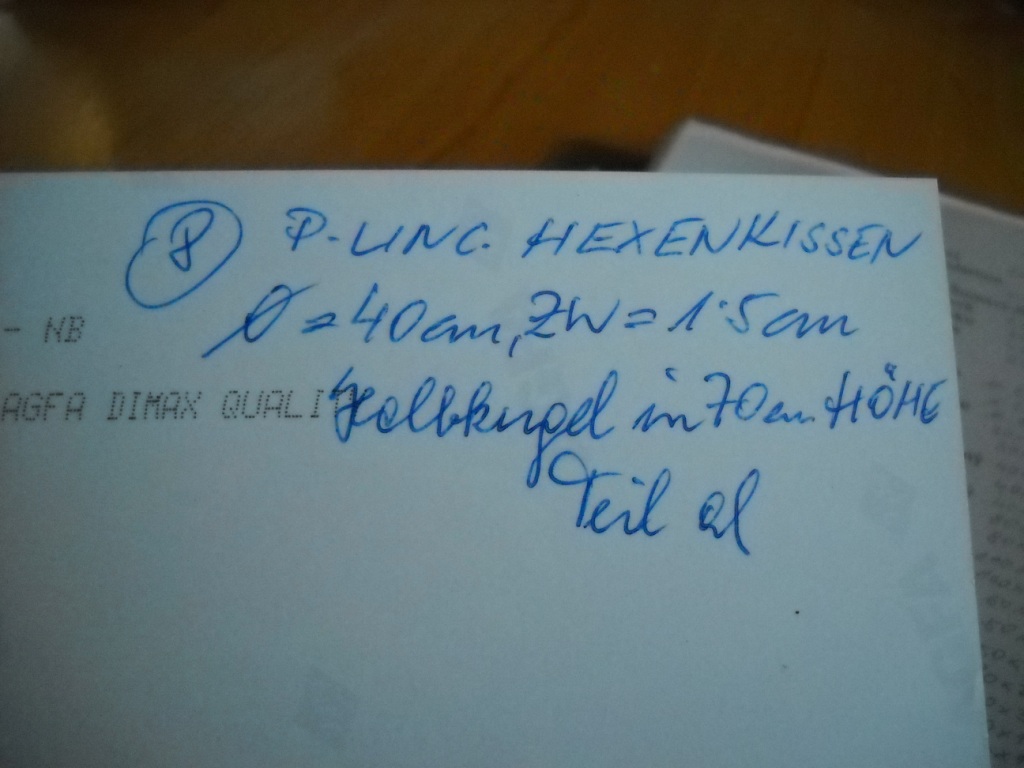 8 P-UNC. HEXENKISSEN
Ø = 40cm, ZW = 1.5cm
- NB
AGFA DIMAX QUALI
Halbkugel in 70cm HÖHE
Teil